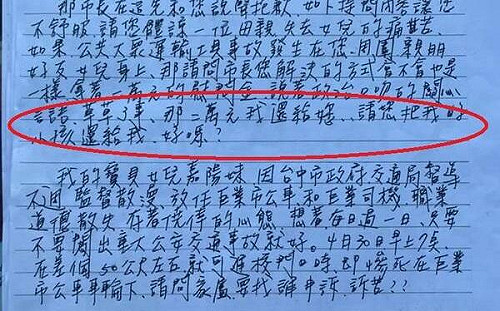 那市長在這先和您說聲抱歉,如下提問內容讓您
不舒服,請您體諒一位母親,失去女兒的痛苦.
如果公共大眾運輸工具事故發生在您周圍親朋
好友女兒身上、那請問市長您解決的方式會不會也是
一樣 萬元的慰問金、說著政治口吻的關心
草草了事、那二萬元我還給您、請您把我的
小孩還給我、好嗎?
我的寶貝女兒嘉陽妹,因台中市政府交通局督導
不週,監督散漫,放任巨業市公車和巨業司機,職業
道德散失存著僥倖的心態,想著每日過一日,只要
不要鬧出重大公安交通事故就好。4月30日早上7点
在差個50公尺左右就可進校門口時,即慘死在巨業
市公車車輪下,請問家屬要找誰申訴,訴苦??